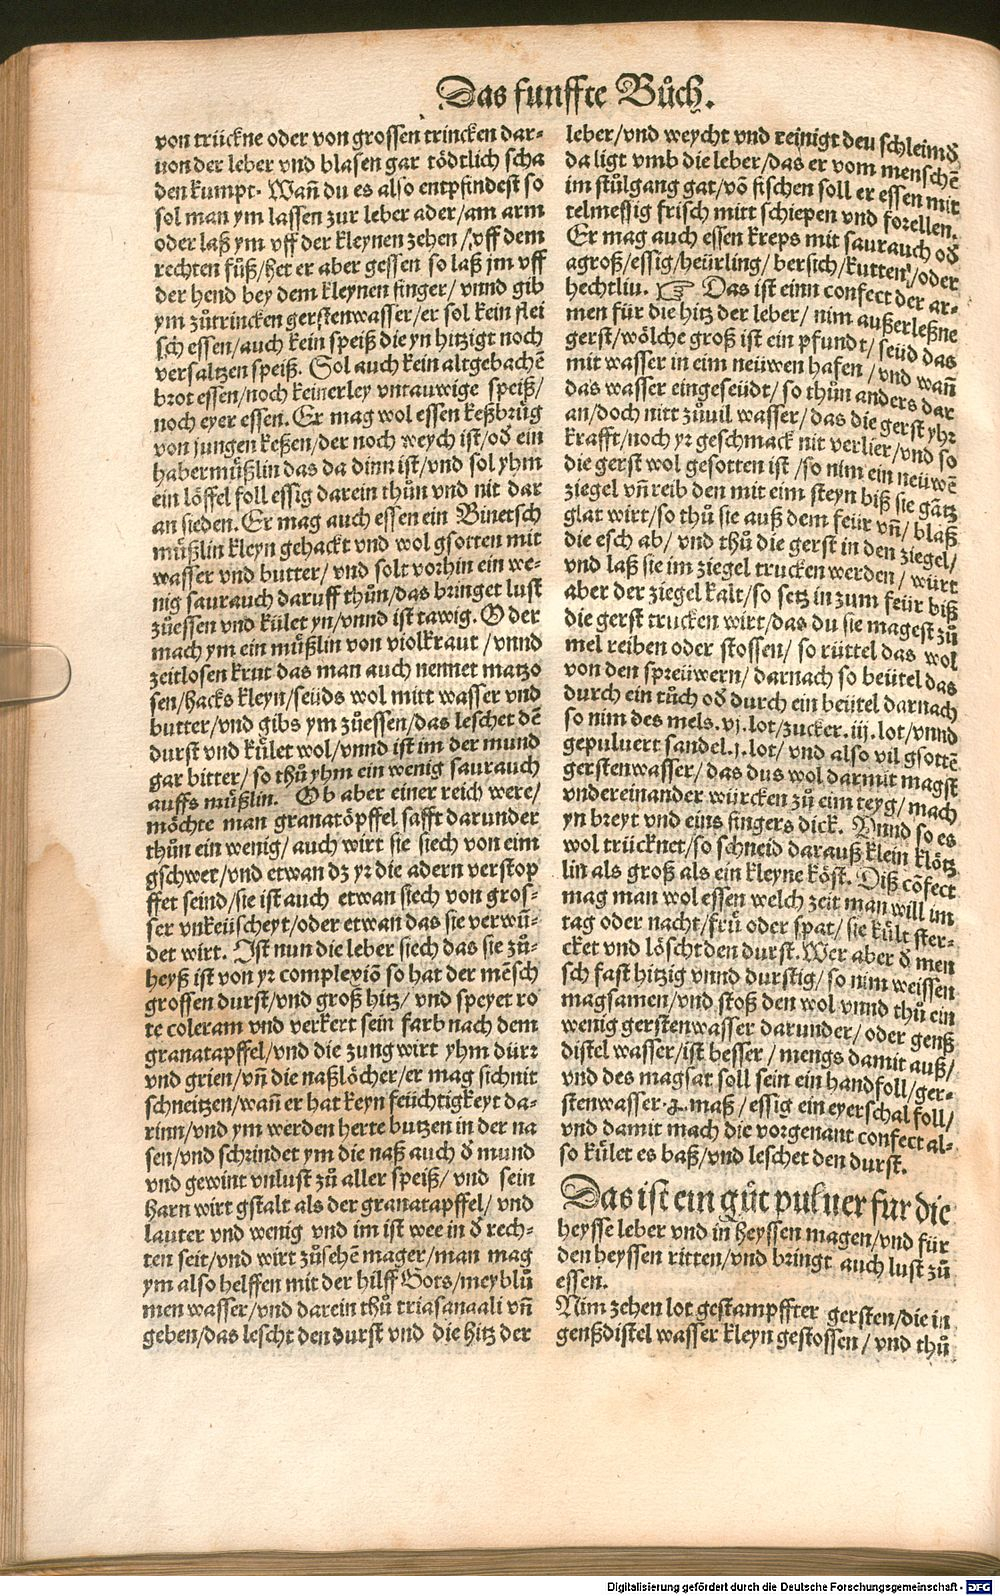 Das funffte Bůch.
von trückne oder von grossen trincken dar⸗
uon der leber vnd blasen gar tödtlich scha
den kumpt. Wañ du es also entpfindest so
sol man ym lassen zur leber ader/am arm
oder laß ym vff der kleynen zehen/vff dem
rechten fůß/het er aber gessen so laß jm vff
der hend bey dem kleynen finger/vnnd gib
ym zůtrincken gerstenwasser/er sol kein flei
sch essen/auch kein speiß die yn hitzigt noch
versaltzen speiß. Sol auch kein altgebachē
brot essen/noch keinerley vntauwige speiß/
noch eyer essen. Er mag wol essen keßbrüg
von jungen keßen/der noch weych ist/oď ein
habermůßlin das da dinn ist/vnd sol yhm
ein löffel foll essig darein thůn vnd nit dar
an sieden. Er mag auch essen ein Binetsch
můßlin kleyn gehackt vnd wol gsotten mit
wasser vnd butter/vnd solt vorhin ein we⸗
nig saurauch daruff thůn/das bringet lust
zůessen vnd kület yn/vnnd ist tawig. Oder
mach ym ein můßlin von violkraut/vnnd
zeitlosen krut das man auch nennet matzo
sen/hacks kleyn/seüds wol mitt wasser vnd
butter/vnd gibs ym zůessen/das leschet dē
durst vnd kület wol/vnnd ist im der mund
gar bitter/so thů yhm ein wenig saurauch
auffs můßlin. Ob aber einer reich were/
möchte man granatöpffel safft darunder
thůn ein wenig/auch wirt sie siech von eim
gschwer/vnd etwan dz yr die adern verstop
ffet seind/sie ist auch etwan siech von gros⸗
ser vnkeüscheyt/oder etwan das sie verwū⸗
det wirt. Ist nun die leber siech das sie zů⸗
heyß ist von yr complexiō so hat der mēsch
grossen durst/vnd groß hitz/vnd speyet ro
te coleram vnd verkert sein farb nach dem
granatapffel/vnd die zung wirt yhm dürr
vnd grien/vñ die naßlöcher/er mag sich nit
schneitzen/wañ er hat keyn feüchtigkeyt da⸗
rinn/vnd ym werden herte butzen in der na
sen/vnd schrindet ym die naß auch ď mund
vnd gewint vnlust zů aller speiß/vnd sein
harn wirt gstalt als der granatapffel/vnd
lauter vnd wenig vnd im ist wee in ď rech⸗
ten seit/vnd wirt zůsehē mager/man mag
ym also helffen mit der hilff Gots/meyblů
men wasser/vnd darein thů triasanaali vñ
geben/das lescht den durst vnd die hitz der
leber/vnd weycht vnd reinigt den schleim ď
da ligt vmb die leber/das er vom menschē
im stůlgang gat/vō fischen soll er essen mit
telmessig frisch mitt schiepen vnd forellen.
Er mag auch essen kreps mit saurauch oď
agroß/essig/heürling/bersich/kutten/oder
hechtlin. ☞ Das ist einn confect der ar⸗
men für die hitz der leber/nim außerleßne
gerst/wölche groß ist ein pfundt/seüd das
mit wasser in eim neüwen hafen/vnd wañ
das wasser eingeseüdt/so thůn anders dar
an/doch nitt zůuil wasser/das die gerst yhr
krafft/noch yr geschmack nit verlier/vnd so
die gerst wol gesotten ist/so nim ein neüwē
ziegel vñ reib den mit eim steyn biß sie gātz
glat wirt/so thů sie auß dem feür vñ/blaß
die esch ab/vnd thů die gerst in den ziegel/
vnd laß sie im ziegel trucken werden/würt
aber der ziegel kalt/so setz in zum feür biß
die gerst trucken wirt/das du sie magest zů
mel reiben oder stossen/so rüttel das wol
von den spreüwern/darnach so beütel das
durch ein tůch oď durch ein beütel darnach
so nim des mels.vj.lot/zucker.iij.lot/vnnd
gepuluert sandel.j.lot/vnd also vil gsottē
gerstenwasser/das dus wol darmit magst
vndereinander würcken zů eim teyg/mach
yn breyt vnd eins fingers dick. Vnnd so es
wol trücknet/so schneid darauß klein klötz
lin als groß als ein kleyne köst. Diß cōfect
mag man wol essen welch zeit man will im
tag oder nacht/frů oder spat/sie kült ster⸗
cket vnd löscht den durst. Wer aber ď men
sch fast hitzig vnnd durstig/so nim weissen
magsamen/vnd stoß den wol vnnd thů ein
wenig gerstenwasser darunder/oder genß
distel wasser/ist besser/mengs damit auß/
vnd des magsat soll sein ein handfoll/ger⸗
stenwasser. maß/essig ein eyerschal foll/
vnd damit mach die vorgenant confect al⸗
so kület es baß/vnd leschet den durst.
Das ist ein gůt puluer fur die
heysse leber vnd in heyssen magen/vnd für
den heyssen ritten/vnd bringt auch lust zů
essen.
Nim zehen lot gestampffter gersten/die in
genßdistel wasser kleyn gestossen/vnd thů
Digitalisierung gefördert durch die Deutsche Forschungsgemeinschaft - DFG